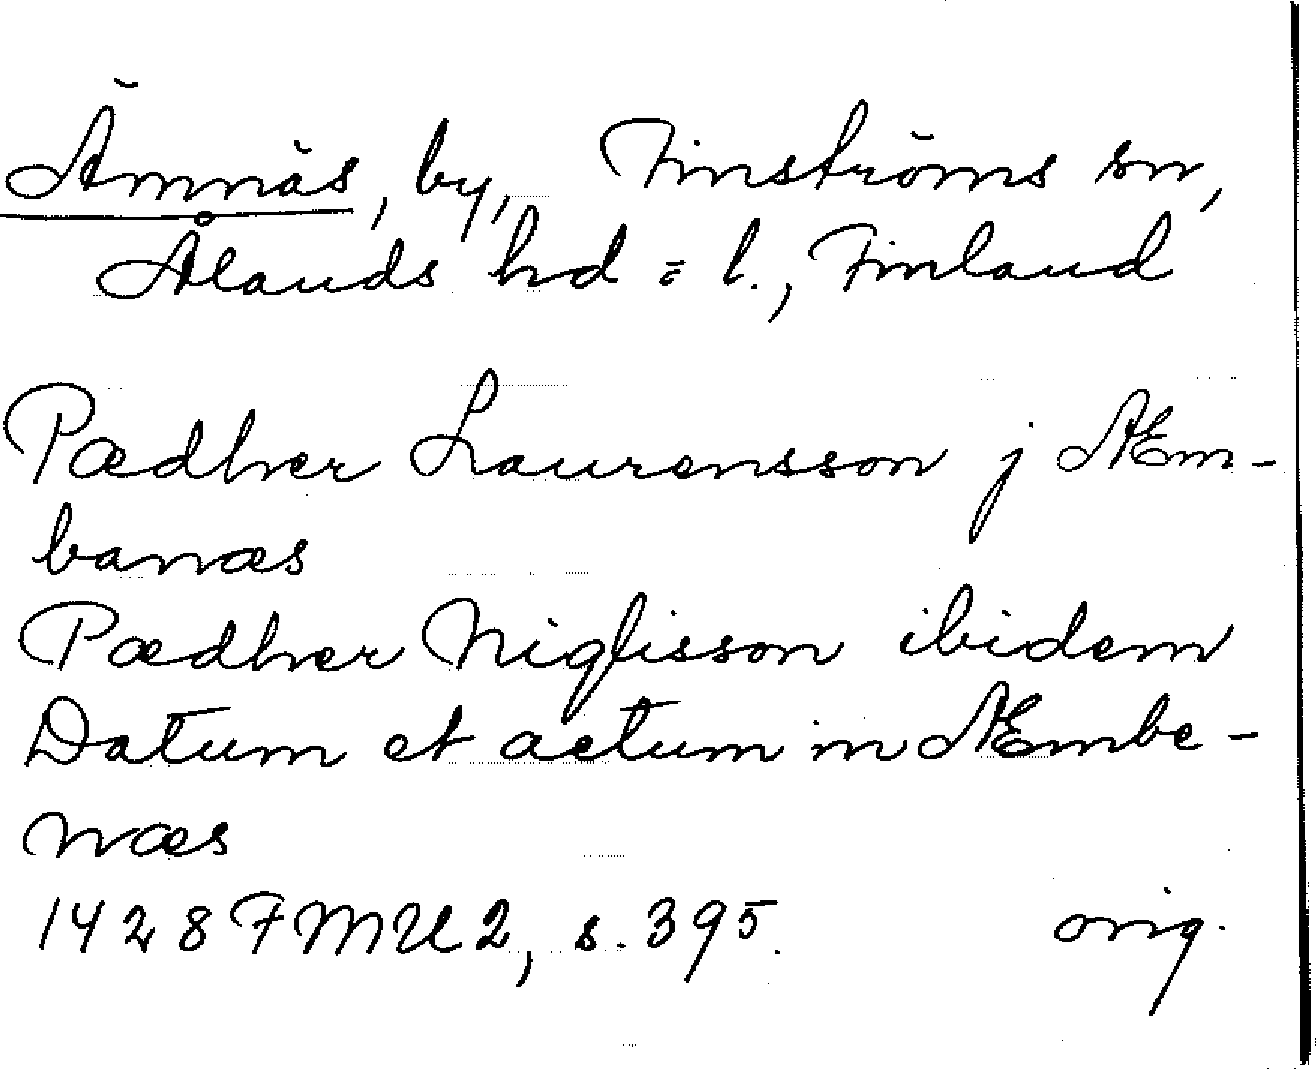 Ämnäs, by, Finströms sn,
Ålands hd = l., Finland
Pædher Laurensson j Æm-
banæs
Pædher Niglisson ibidem
Datum et actum in Æmbe-
næs
1428 FMU 2, s. 395. orig.